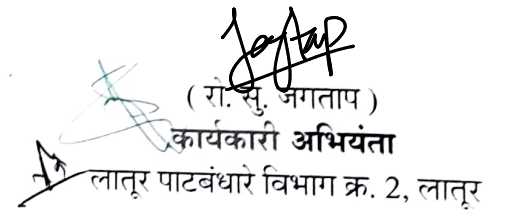 Jagtap
( रो. सु. जगताप )
कार्यकारी अभियंता
लातूर पाटबंधारे विभाग क्र. 2, लातूर